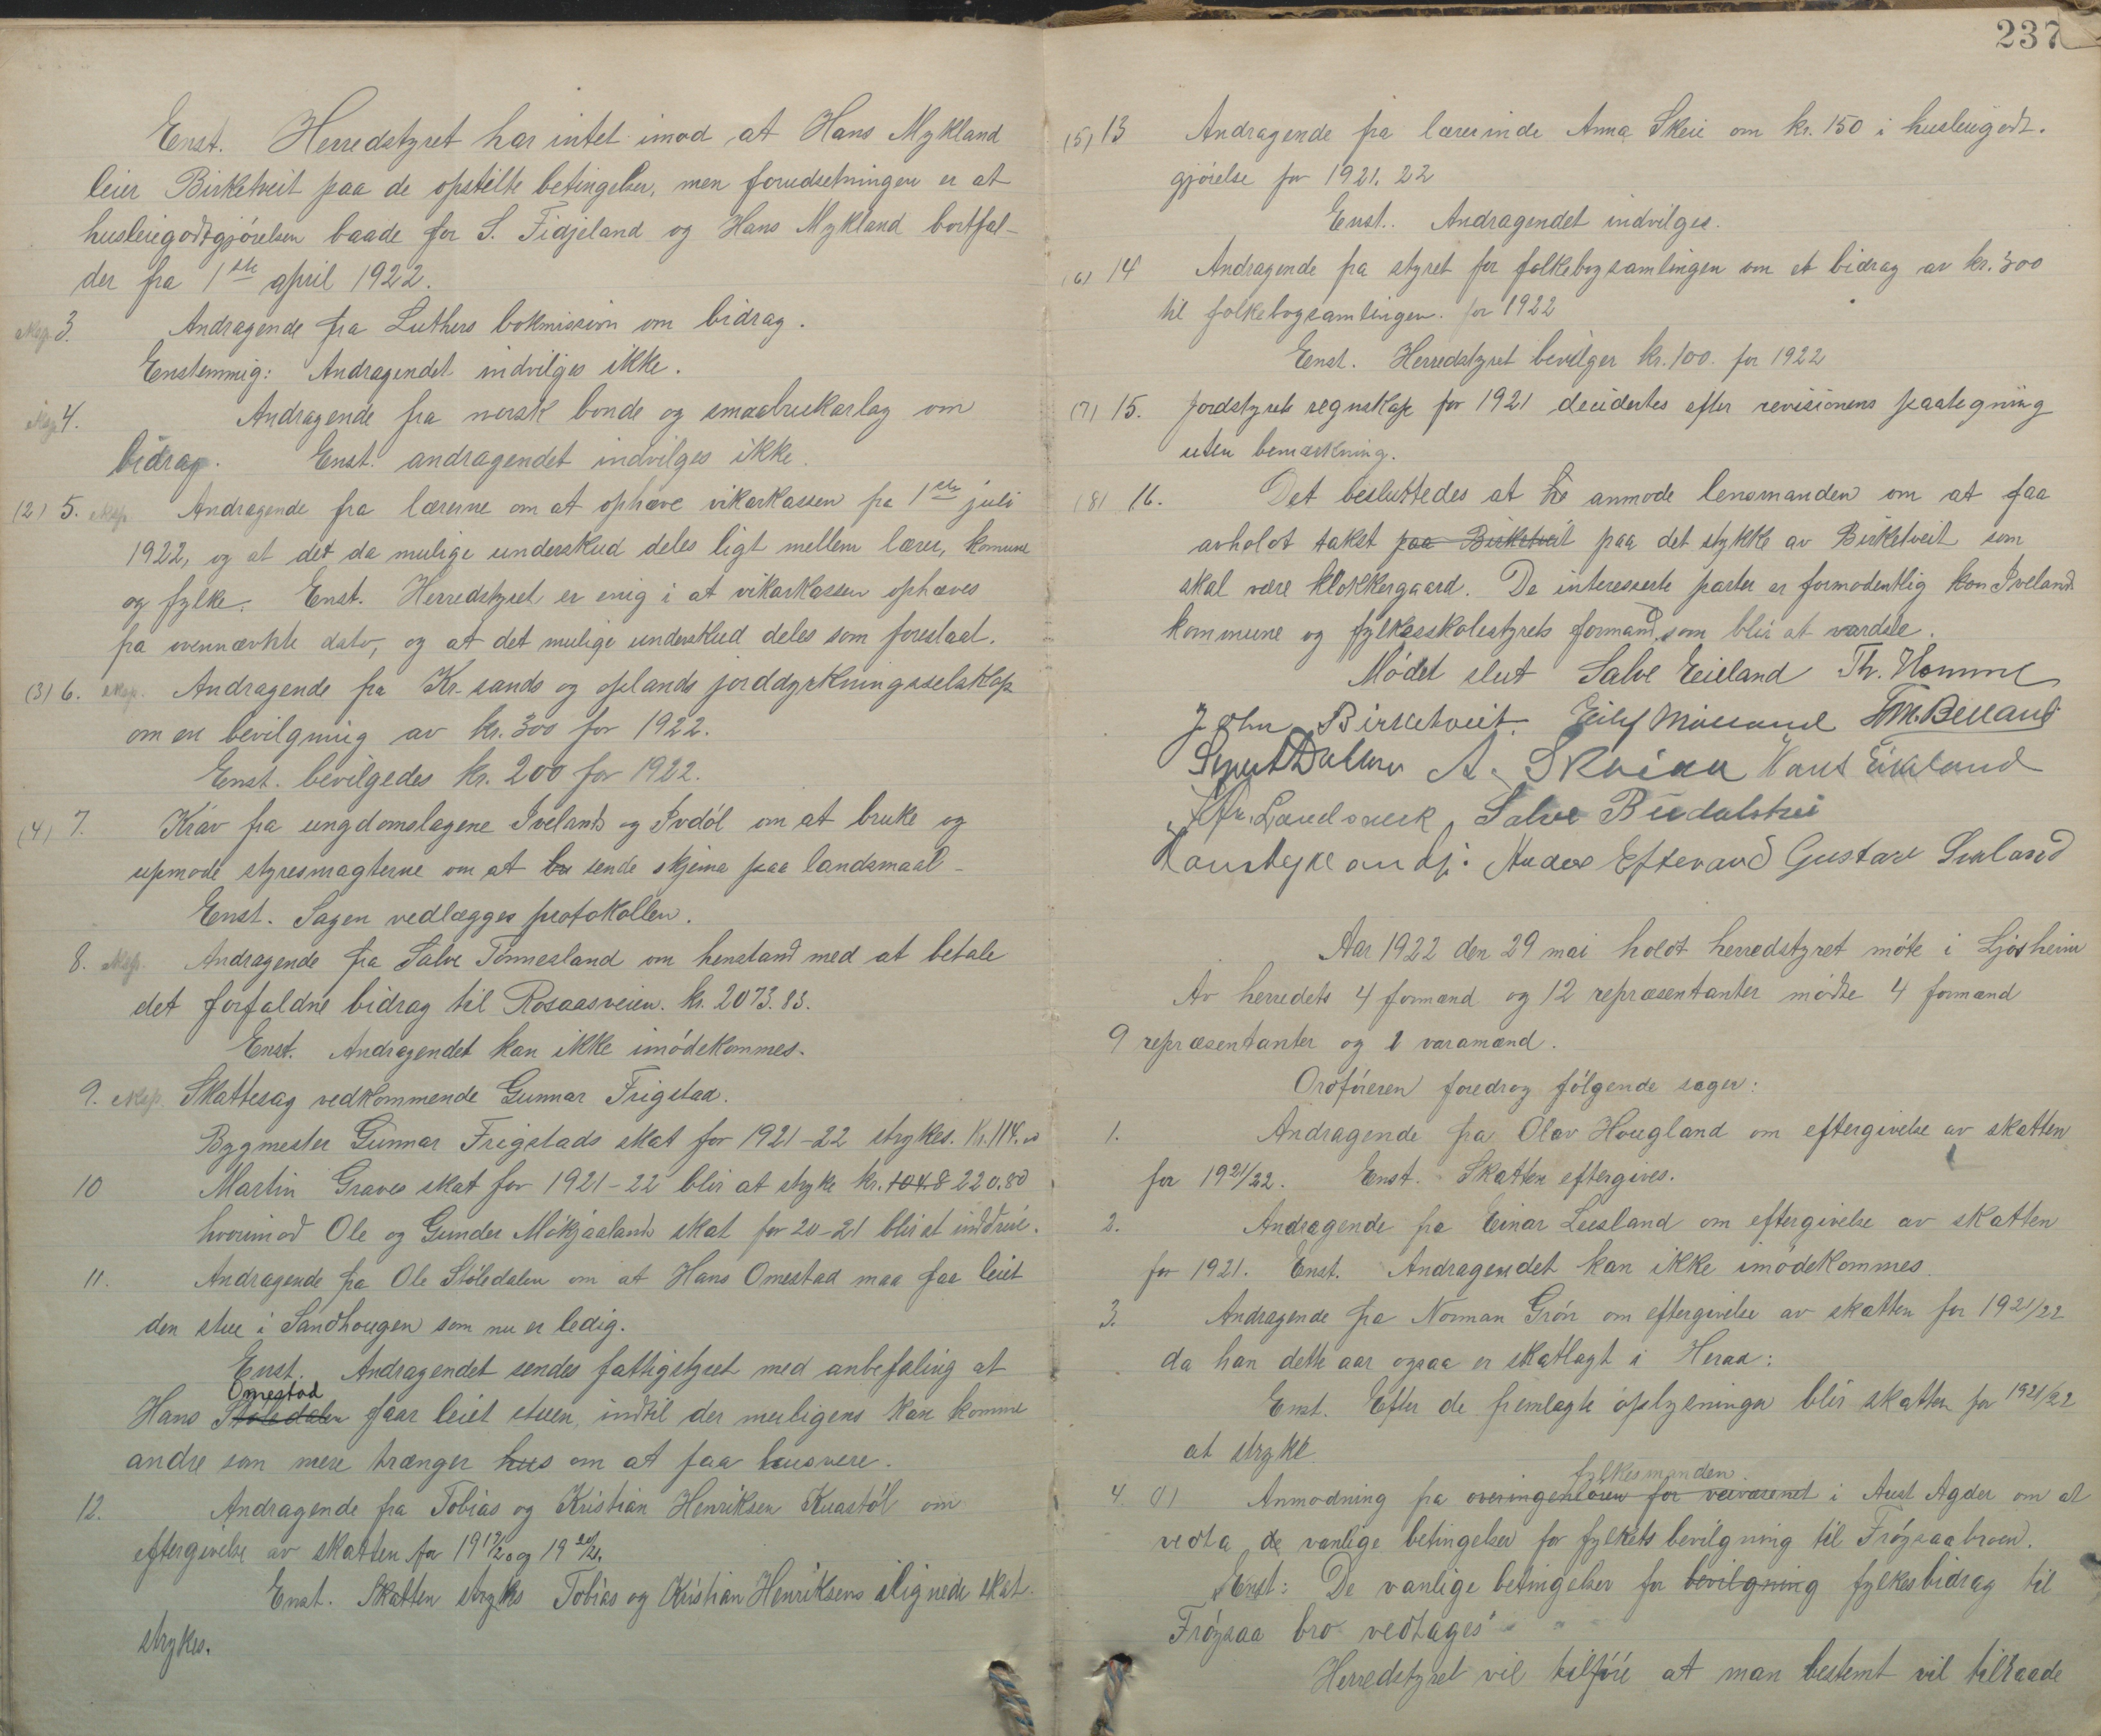 Enst. Herredstyret har intet imod at Hans Mykland
leier Birketveit paa de opstilte betingelser, men forudsetningen er at
husleiegodtgjørelsen baade for S. Fidjeland og Hans Mykland bortfal-
der fra 1ste april 1922.
eksp. 3. Andragende fra Luthers bokmission om bidrag.
Enstemmig: Andragendet indvilges ikke.
eksp 4. Andragende fra norsk bonde og smaabrukarlag om
bidrag. Enst. andragendet indvilges ikke.
(2) 5. eksp. Andragende fra lærerne om at ophæve vikarkassen fra 1ste juli
1922, og at det da mulige underskud deles ligt mellem lærer, komune
og fylke. Enst. Herredstyret er enig i at vikarkassen ophæves
fra ovennævnte dato, og at det mulige underskud deles som foreslaat.
(3) 6. eksp. Andragende fra Kr-sands og oplands jorddyrkningsselskap
om en bevilgning av kr. 300 for 1922.
Enst. bevilgedes kr. 200 for 1922.
(4) 7. Krav fra ungdomslagene Iveland og Ivdøl om at bruke og
upmode styresmagterne om at sende skjema paa landsmaal -
Enst. Sagen vedlægges protokollen.
8. eksp. Andragende fra Salve Tønnesland om henstand med at betale
det forfaldne bidrag til Rosaasveien. kr. 2073.83.
Enst. Andragendet kan ikke imødekommes.
9. eksp. Skattesag vedkommende Gunnar Frigstad.
Bygmester Gunnar Frigstads skat for 1921-22 strykes. Kr. 114.
10 Martin Graves skat for 1921-22 blir at stryke kr. 104.8 220.80
hvorimod Ole og Gunder Mökjaalands skat for 20-21 blir at inddrive.
11. Andragende fra Ole Stöledalen om at Hans Omestad maa faa leiet
den stue i Sandhougen som nu er ledig.
Enst. Andragendet sendes fattigstyret med anbefaling at
Omestad
Hans Stöledalen faar leiet stuen, indtil der muligens kan komme
andre som mere trænger hus om at faa husvære.
12. Andragende fra Tobias og Kristian Henriksen Kvastöl om
eftergivelse av skatten for 1919/20 og 1920/21.
Enst. Skatten strykes Tobias og Kristian Henriksens ilignede skat
strykes.
237
(5) 13 Andragende fra lærerinde Anna Skeie om kr. 150 i husleiegodt-
gjørelse for 1921. 22
Enst. Andragendet indvilges.
(6) 14 Andragende fra styret for folkebogsamlingen om et bidrag av kr. 300
til folkebogsamlingen. for 1922
Enst. Herredstyret bevilger kr. 100. for 1922
(7) 15. Jordstyrets regnskap for 1921 decidertes efter revisionens paategning
uten bemærkning.
(8) 16. Det besluttedes at anmode lensmanden om at faa
avholdt takst paa Birketveit paa det stykke av Birketveit som
skal være klokkergaard. De interesserte parter er formodentlig kon Iveland
kommune og fylkesskolestyrets formand, som blir at vardsle.
Mödet slut Salve Eieland Th. Homme
John Birketveit. Eilef Møiland Tom. Beiland
Sigurd Dalane A. Skeiaa Hans Eikeland
Salve Birdalstrei
Anders Eftevand Gustav Iveland
Aar 1922 den 29 mai holdt herredstyret möte i Ljosheim
Av herredets 4 formænd og 12 repræsentanter mødte 4 formænd
9 repræsentanter og 1 varamænd.
Ordføreren foredrog følgende sager:
1. Andragende fra Olav Hougland om eftergivelse av skatten
for 1921/22. Enst. Skatten eftergives.
2. Andragende fra Einar Lusland om eftergivelse av skatten
for 1921. Enst. Andragendet kan ikke imødekommes.
3. Andragende fra Norman Grön om eftergivelse av skatten for 1921/22
da han dette aar ogsaa er skatlagt i Herad:
Enst. Efter de fremlagte oplysninger blir skatten for 1921/22
at stryke
fylkesmanden
4. a) Anmodning fra overingeniören for veivæsenet i Aust Agder om at
vedta de vanlige betingelser for fylkets bevilgning til Fröysaa broen.
Enst: De vanlige betingelser for bevilgning fylkesbidrag til
Fröysaa bro vedtages
Herredstyret vil tilföie at man bestemt vil tilraade